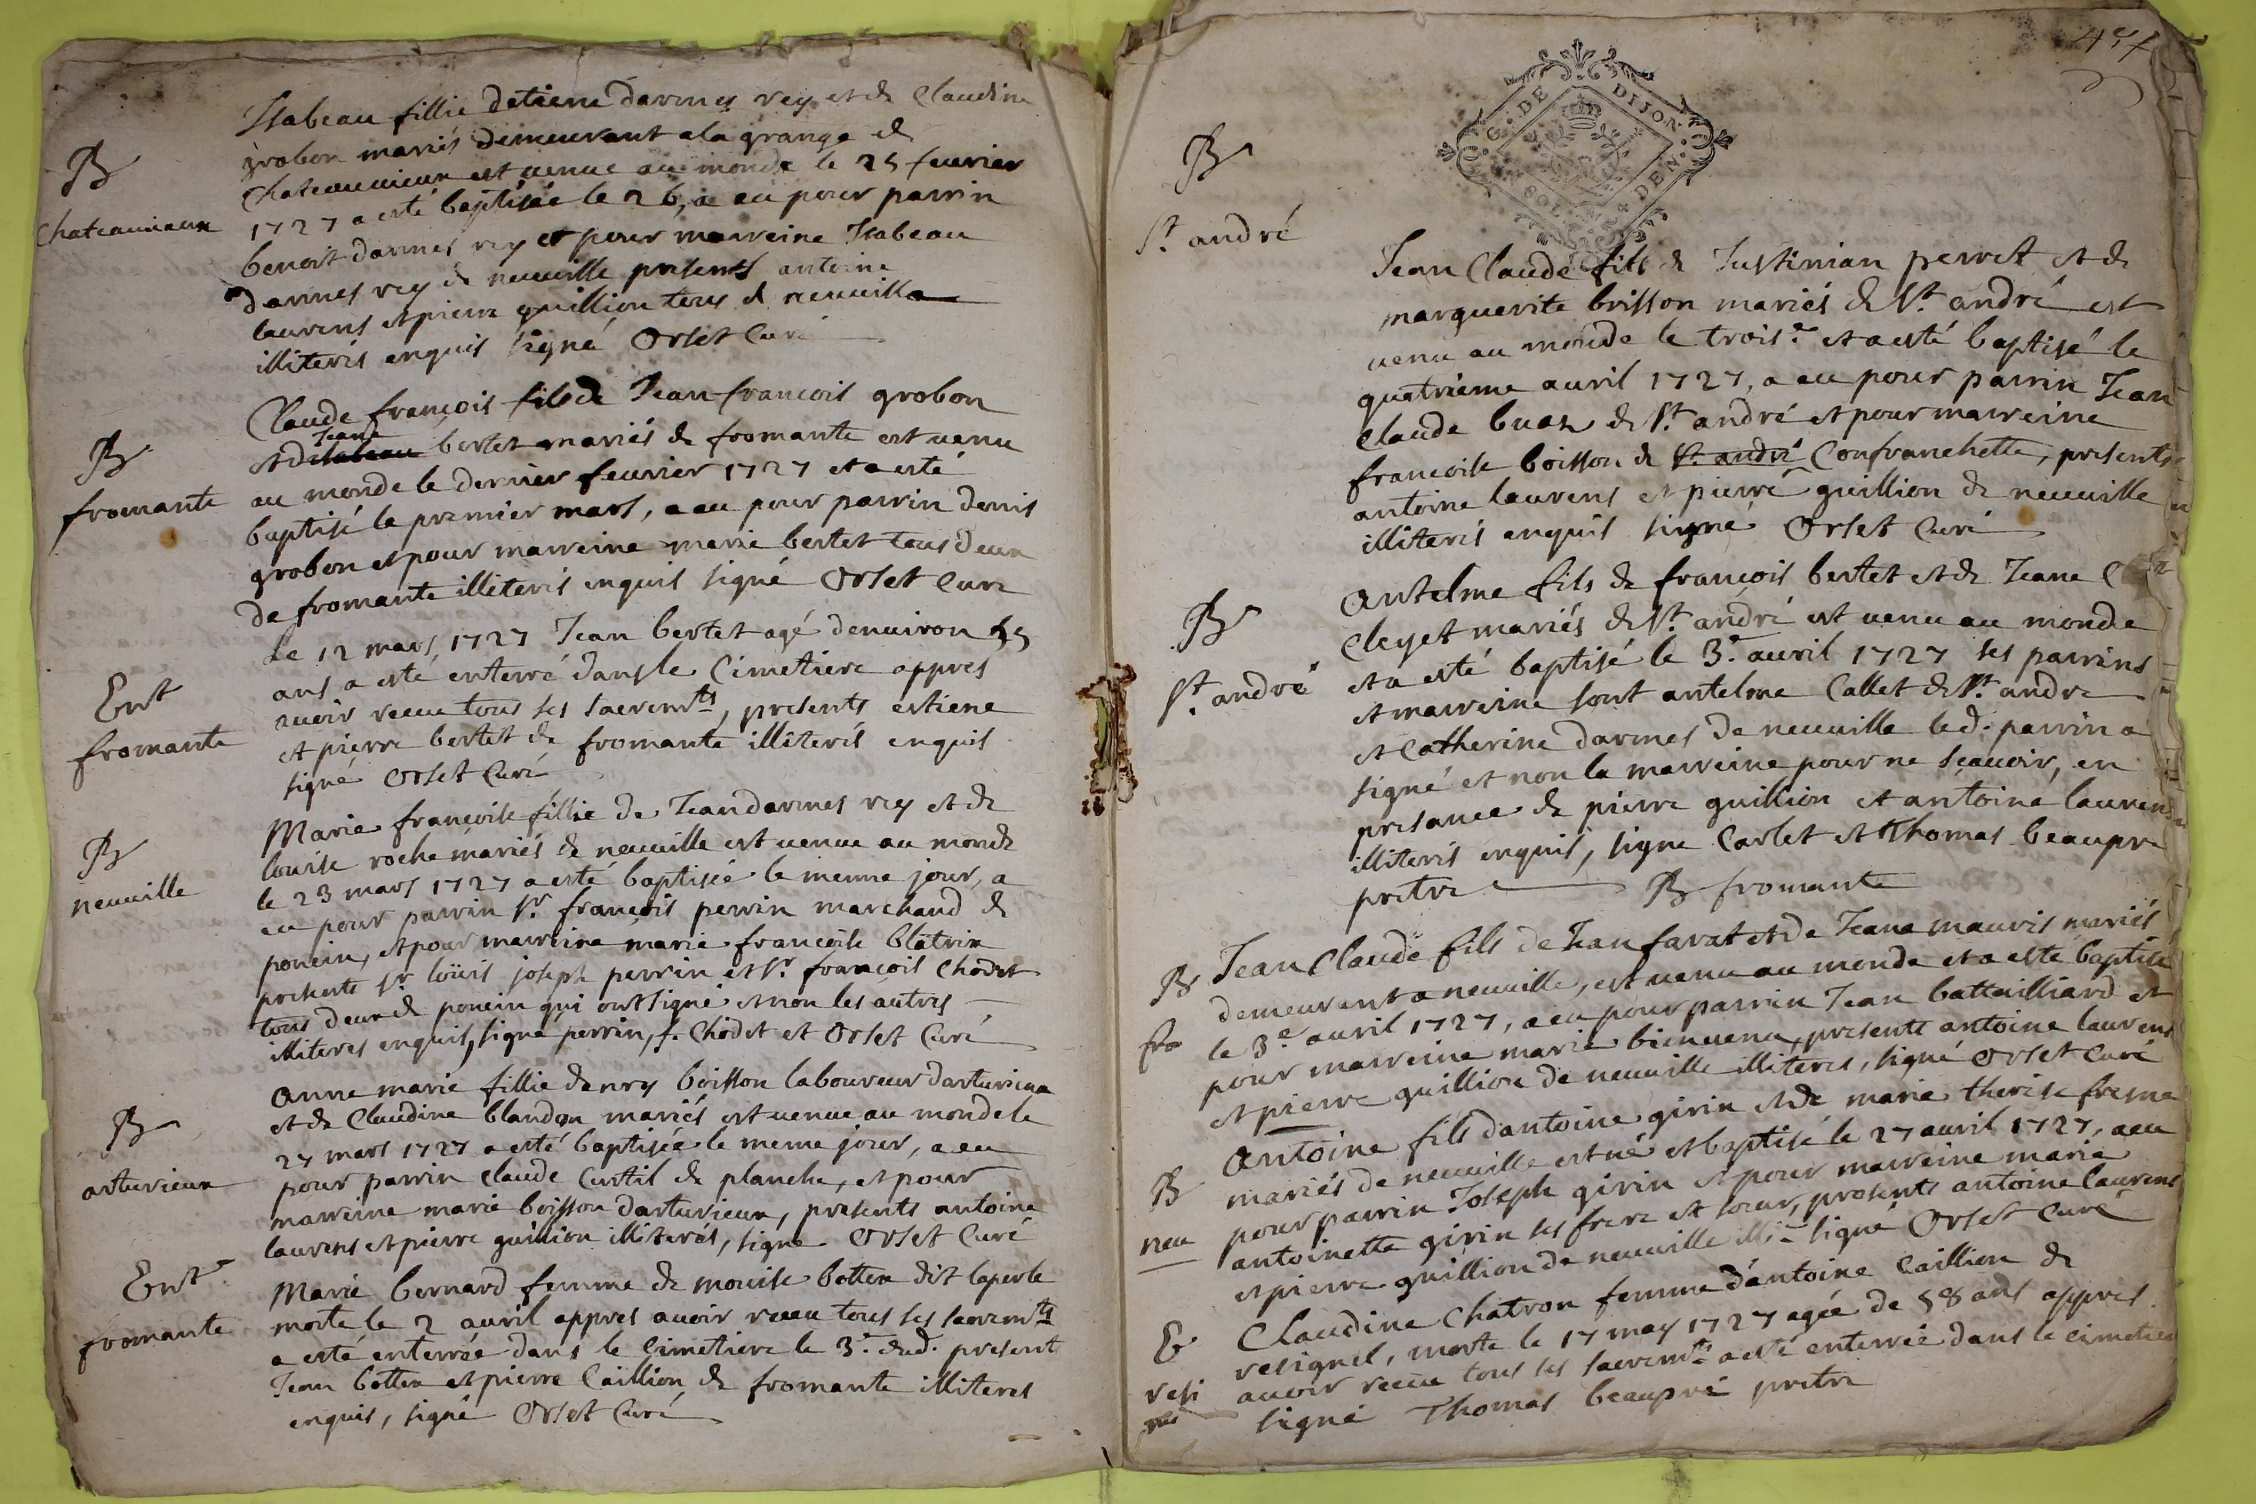 B
Chateauvieux
Isabeau fillie detiene darmes rey et de Claudine
grobon mariés demeurant a la grange de
Chateauvieux est venue au monde le 25 feuvrier
1727 a esté baptisée le 26, a eu pour parrin
benoit darmes rey et pour marreine Isabeau
darmes rey de neuville presents antoine
laurens et pierre guillion tous de neuville
illiterés enquis signé Orset Curé
B
fromante
Claude françois fils de Jean francois grobon
Jeane
et de isabeau bertet mariés de fromante est venu
au monde le dernier feuvrier 1727 et a esté
baptisé le premier mars, a eu pour parrin denis
grobon et pour marreine marie bertet tous deux
de fromante illiterés enquis signé Orset Curé
Ent
fromante
Le 12 mars 1727 Jean bertet agé denviron 55
ans a esté enterré dans le Cimetiere appres
avoir receu tous ses sacremts, presents estiene
et pierre bertet de fromante illiterés enquis
signé Orset Curé
B
neuville
Marie françoise fillie de Jean darmes rey et de
louise roche mariés de neuville est venue au monde
le 23 mars 1727 a esté baptisée le meme jour, a
eu pour parrin sr. françois perrin marchand de
poncin, et pour marreine marie francoise blatrin
presents sr. loüis joseph perrin et sr. françois Chodet
tous deux de poncin qui ont signé et non les autres
illiteres enquis, signé perrin, f. Chodet et Orset Curé
B
arturieux
anne marie fillie danry boisson laboureur darturieux
et de Claudine blandon mariés est venue au monde le
27 mars 1727 a esté baptisée le meme jour, a eu
pour parrin Claude Curtil de planche, et pour
marreine marie boisson darturieux, presents antoine
laurens et pierre guillion illiterés, signé Orset Curé
Ent
fromante
Marie bernard femme de mouise bottex dit laperle
morte le 2 avril appres avoir receu tous ses sacremts
a esté enterrée dans le Cimetiere le 3e. dud. present
Jean bottex et pierre Caillion de fromante illiteres
enquis, signé Orset Curé
G. DE DIJON
SOL DEN.
B
st. andré
Jean Claude fils de Justinian perret et de
marguerite brisson mariés de st. andré est
venu au monde le trois.e et a esté baptisé le
quatrieme avril 1727, a eu pour parrin Jean
Claude buaz de st. andré et pour marreine
francoise boisson de st. andré Confranchette, presents
antoine laurens et pierre guillion de neuville
illiterés enquis signé Orset Curé
B
st. andré
antelme fils de françois bertet et de Jeane
Cleyet mariés de st. andré est venu au monde
et a esté baptisé le 3e. avril 1727 ses parrins
et marreine sont antelme Callet de st. andre
et Catherine darmes de neuville led. parrin a
signé et non la marreine pour ne sçavoir, en
presance de pierre guillion et antoine laurens
illiterés enquis, signe Carlet et Thomas beaupre
pretre
B fromante
B
fro
Jean Claude fils de Jean favat et de Jeane mauris mariés
demeurent a neuville, est venu au monde et a esté baptisé
le 3e avril 1727, a eu pour parrin Jean battailliard et
pour marreine marie bienvenu, presents antoine laurens
et pierre guillion de neuville illiteres, signé Orset Curé
B
neu
antoine fils dantoine girin et de marie therese fresne
mariés de neuville est né et baptisé le 27 avril 1727, a eu
pour parrin Joseph girin et pour marreine marie
antoinette girin ses frere et soeur, presents antoine laurens
et pierre guillion de neuville illi- signé Orset Curé
E
resi
gnel
Claudine Chatron femme dantoine Caillion de
resignel, morte le 17 may 1727 agée de 58 ans appres
avoir receu tous ses sacremts a esté enterrée dans le cimetiere
signé Thomas beaupré pretre